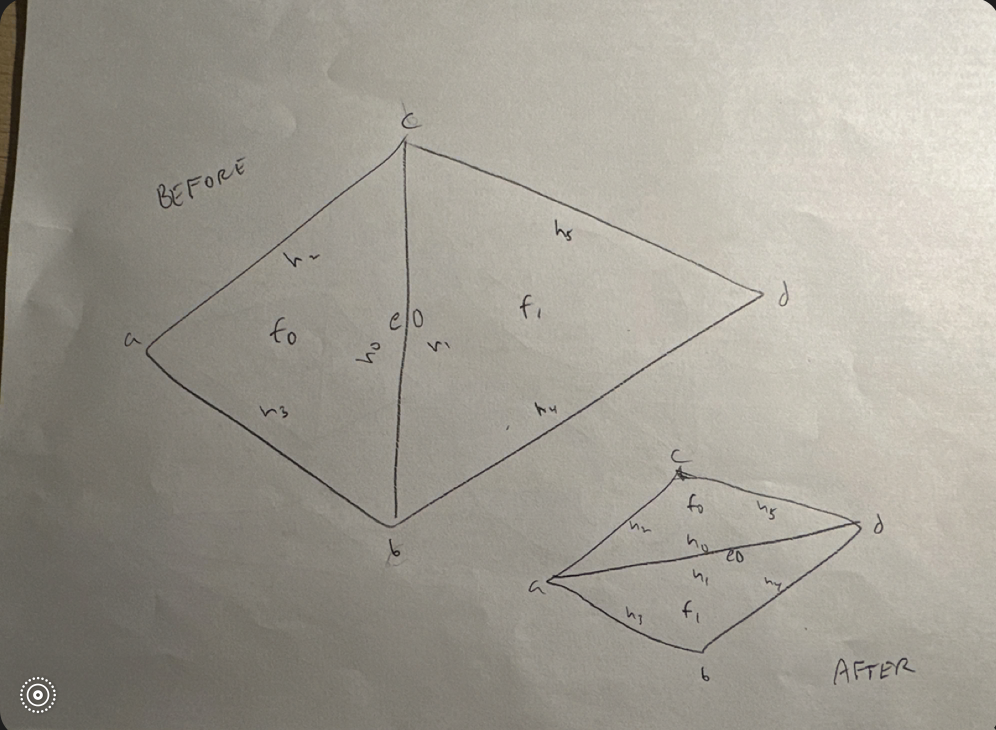 c
BEFORE
h5
h2
d
f1
e0
a
f0
h0
h1
h3
h4
b
c
f0
h5
h2
d
h0
e0
h1
a
h4
h3
f1
b
AFTER